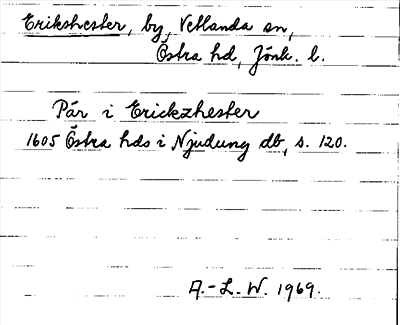 Erikshester, by, Vetlanda sn,
Östra hd, Jönk. l.
Pár i Erickzhester
1605 Östra hds i Njudung db, s. 120.
A.-L. W. 1969.